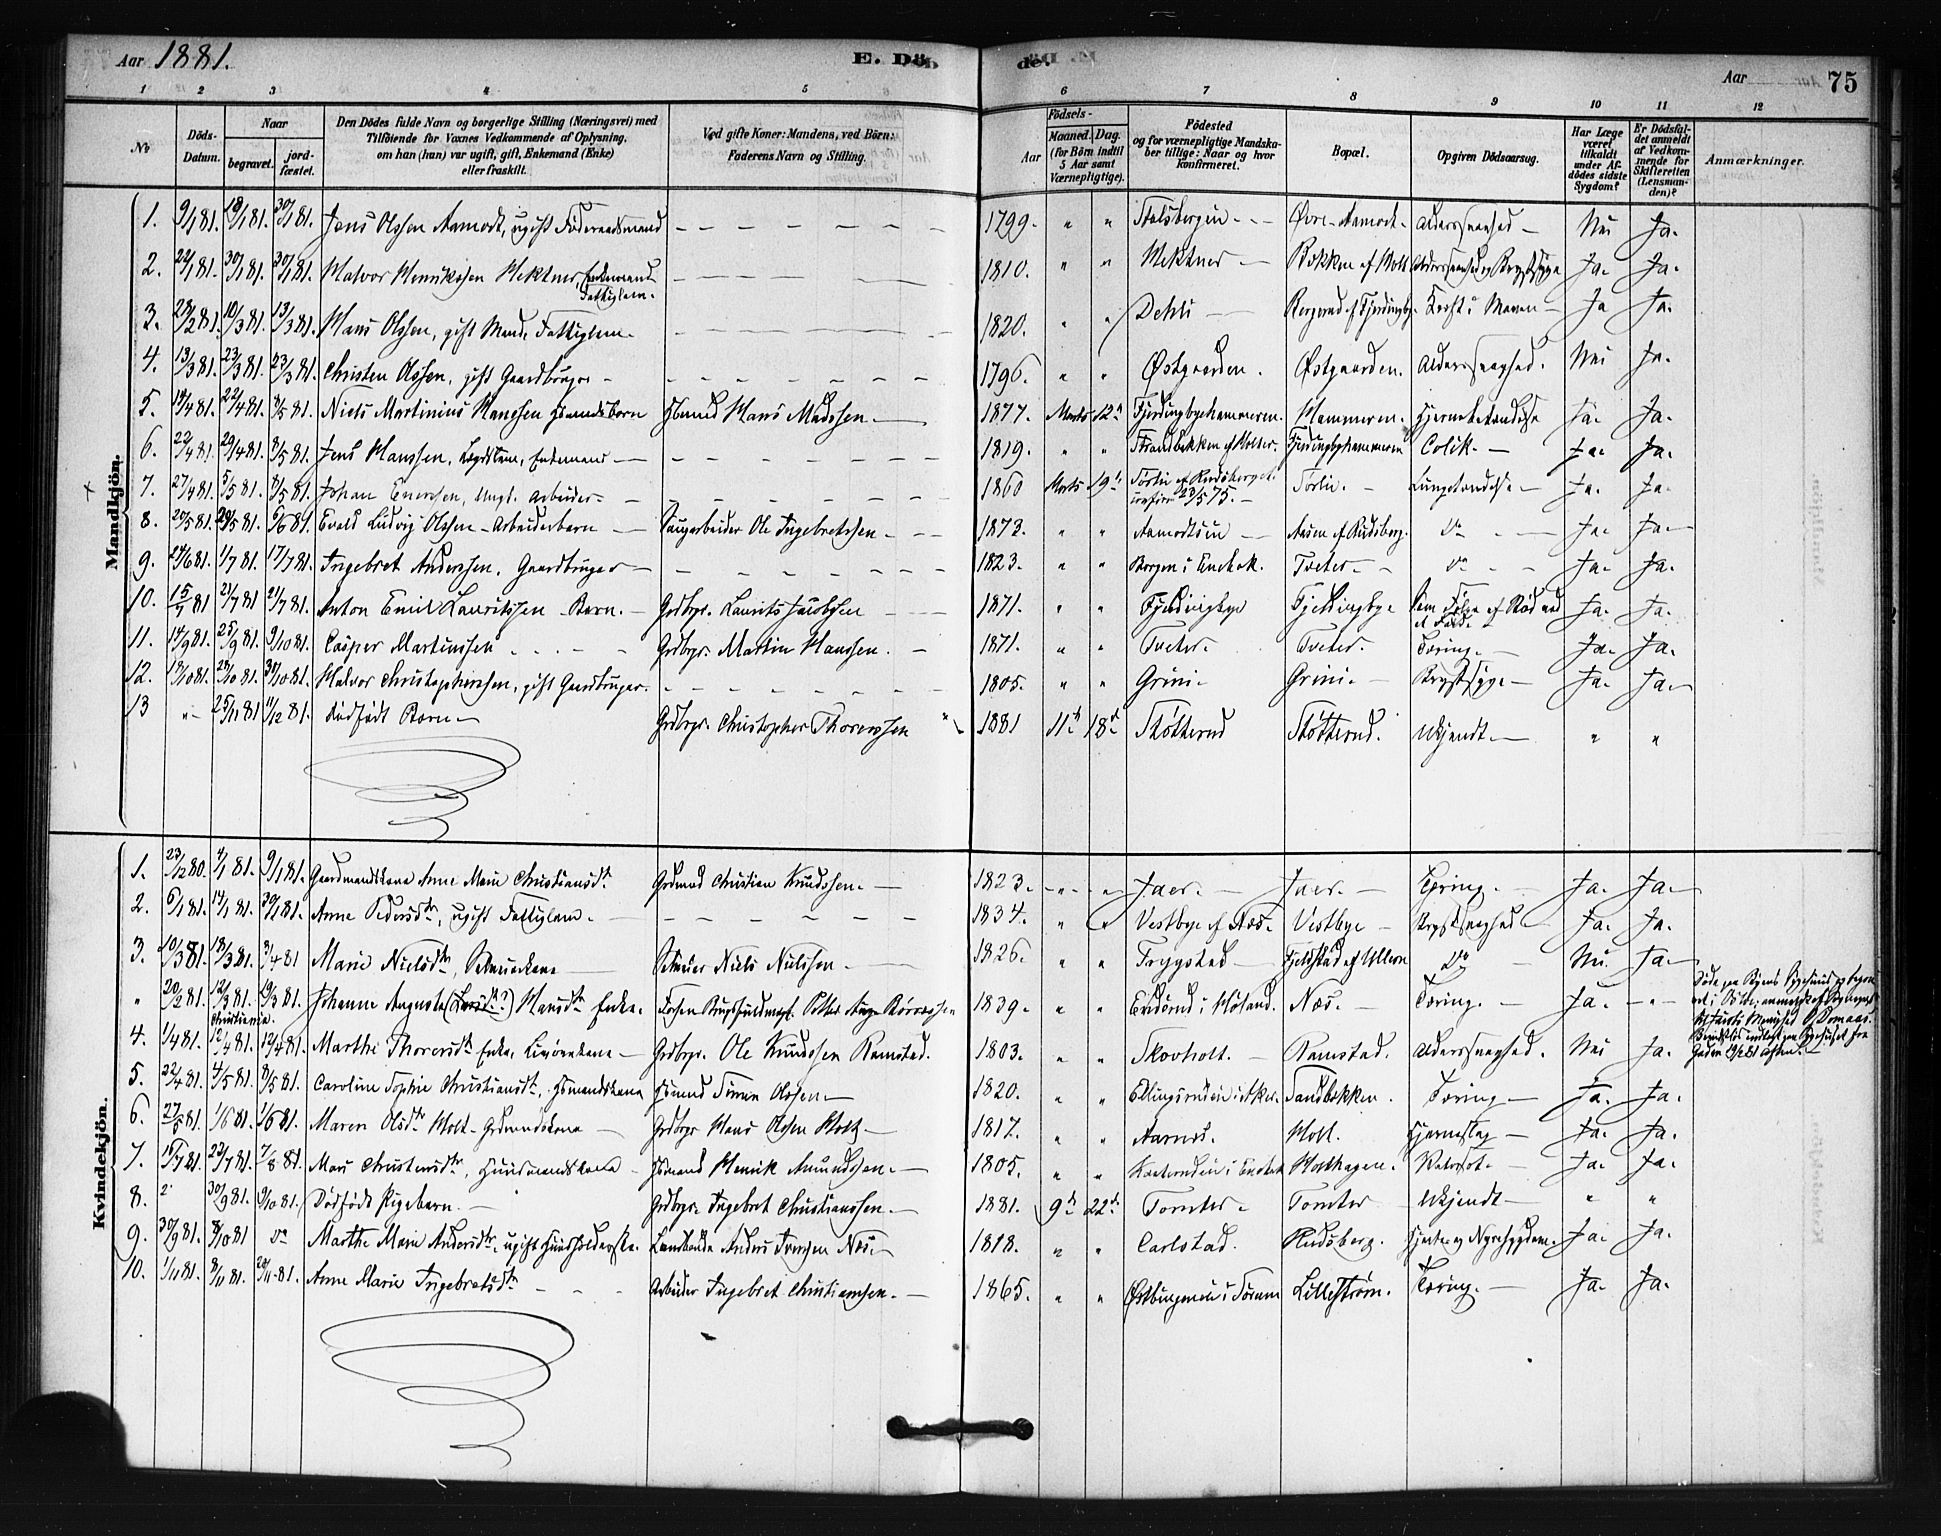 Aar 1881. E. Dö de. Aar 75
1 2 3 4 5 6 7 8 9 10 11 12
No Döds-Datum. Naar begravet. jordfæstet. Den Dödes fulde Navn og borgerlige Stilling (Næringsvei) med Tilföiende for Voxnes Vedkommende af Oplysning, om han (hun) var ugift, gift, Enkemand (Enke) eller fraskilt. Ved gifte Koner: Mandens, ved Börn: Faderens Navn og Stilling. Aar Födsels- Maaned. Dag. (for Börn indtil 5 Aar samt Værnepligtige). Födested og for værnepligtige Mandskaber tillige: Naar og hvor konfirmeret. Bopæl. Opgiven Dödsaarsag. Har Læge været tilkaldt under Afdödes sidste Sygdom? Er Dödsfaldet anmeldt af Vedkommende for Skifteretten (Lensmanden)? Anmærkninger.
Mandkjön.
1. 9/1 81. 18/1 81. 30/1 81. Jens Olssen Aamodt, ugift Föderaadsmand 1799. " " Stalsbergeie Øvre-Aamodt. Alderssvaghed Nei Ja.
2. 22/1 81. 30/1 81. 30/1 81. Halvor Henrikssen Hektner, Enkemand Fattiglem. 1810. " " Hektner Bækken af Holt Alderssvaghed og Brystsyge Ja. Ja.
3. 28/2 81. 10/3 81. 13/3 81. Hans Olssen, gift Mand. Fattiglem. 1820. " " Dehli af Fjerdingby. Kræft i Maven Ja Ja.
4. 13/3 81. 23/3 81. 23/3 81. Christen Olssen, gift Gaardbruger 1796. " " Østgaarden. Østgaarden. Alderssvaghed. Nei Ja.
5. 14/4 81. 22/4 81. 8/5 81. Niels Martinius Hanssen Hsmandsbarn Hsmand Hans Madssen. 1877. Marts 12te Fjerdingbyehammeren. Hammeren. Hjernebetændelse Ja. Ja.
6. 22/4 81. 29/4 81. 8/5 81. Jens Hanssen, Lægdslem, Enkemand 1819. " " Strandbækken af Holter. Fjerdingbyhammeren Colik. Ja. Ja.
7. 27/4 81. 5/5 81. 8/5 81. Johan Enerssen, Ungk. Arbeider 1860 Marts 19de Torlie af Rudsberget. confirm 23/5 75. Torlie. Lungebetændelse Ja. Ja.
8. 20/5 81. 29/5 81. 6/6 81. Evald Ludvig Olssen Arbeiderbarn Saugarbeider Ole Ingebretssen 1873. " " Aamodteie Aasen af Rudsberg. Do Ja. Ja.
9. 24/6 81. 1/7 81. 17/7 81. Ingebret Anderssen. Gaardbruger 1823. " " Borgen i Enebak. Tveter. Do Ja. Ja.
10. 15/7 81 21/7 81 21/7 81. Anton Emil Lauritssen Barn. Grdbrgr. Laurits Jacobssen 1871. " " Fjerdingbye Fjerdingbye Som Følge af Stød ved et Fald. Ja. Ja.
11. 14/9 81. 25/9 81. 9/10 81. Casper Martinssen Grdbrgr. Martin Hanssen. 1871. " " Tveter. Tveter. Tæring. Ja. Ja.
12. 18/10 81. 28/10 81. 30/10 81. Halvor Christopherssen, gift Gaardbruger. 1805. " " Grini Grini. Brystsyge Ja. Ja.
13 " 25/11 81 11/12 81. Dødfødt Barn Grdbrgr. Christopher Thorerssen 1881 11te 18de Støtterud Støtterud. Ukjendt. " "
Kvindekjön.
1. 23/12 80. 4/1 81. 9/1 81. Gaardmandskone Anne Marie Christiansdtr. Grdmd Christian Knudssen. 1823. " " Jaer. Jaer. Tæring. Ja. Ja.
2. 6/1 81. 14/1 81. 30/1 81. Anne Pedersdtr, ugift Fattiglem. 1834. " " Vestbye af Næs. Vestbye Brystsvaghed Ja. Ja.
3. 10/3 81. 18/3 81. 3/4 81 Marie Nielsdtr, Niels Nielssen 1826. " " Trygstad Fjeldstad af Ullern Do Nei. Ja.
" 20/2 81. 12/3 81. Christiania. 19/3 81. Johanne Augusta Hansdtr Enke. 1839. " " i Høland. Næs. Tæring. Ja. "
Døde paa Rigets i Oslo; anmeldt
4. 1/4 81. 12/4 81. 12/4 81. Marthe Thorersdtr Enke, Grdbrgr. Ole Knudssen Ramstad. 1803. " " Skovholt. Ramstad. Alderssvaghed. Nei Ja.
5. 22/4 81. 4/5 81. 8/5 81. Caroline Sophie Christiansdtr. Hsmandskone Hsmand Simen Olssen 1820. " " Ellingsrudeie i Aker. Sandbækken. Tæring Ja. Ja.
6. 27/5 81. 1/6 81. 1/6 81. Maren Olsdtr Holt Grdmandskone Grdbrgr Hans Olssen Holt 1817. " " Aarnes. Holt. Hjerneslag Ja. Ja.
7. 16/7 81. 23/7 81. 7/8 81 Mari Christensdtr, Huusmandskone Hsmand Henrik Amundssen. 1805. " " i Enebak Holthagen. Vatersot. Ja. Ja.
8. " 30/9 81. 9/10 81. Dødfødt Pigebarn. Grdbrgr. Ingebret Christianssen. 1881. 9de 22de Tomter. Tomter Ukjendt " "
9. 30/9 81. 8/10 81 Do Marthe Marie Andersdtr, ugift Huusholderske. Anders Iverssen Næs. 1818. " " Carlstad. Rudsberg. Hjerte og Nyresygdom. Ja. Ja.
10. 1/11 81. 8/11 81. 20/11 81. Anne Marie Ingebretsdtr Arbeider Ingebret Christianssen. 1865. " " i Sørum Lillestrøm. Tæring. Ja. Ja.